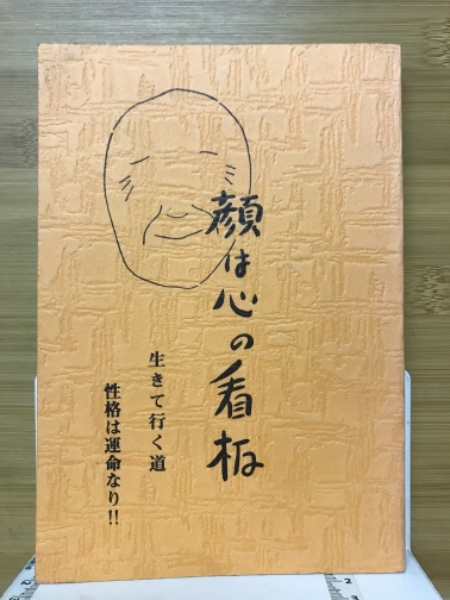 顔は心の看板
生きて行く道
性格は運命なり!!